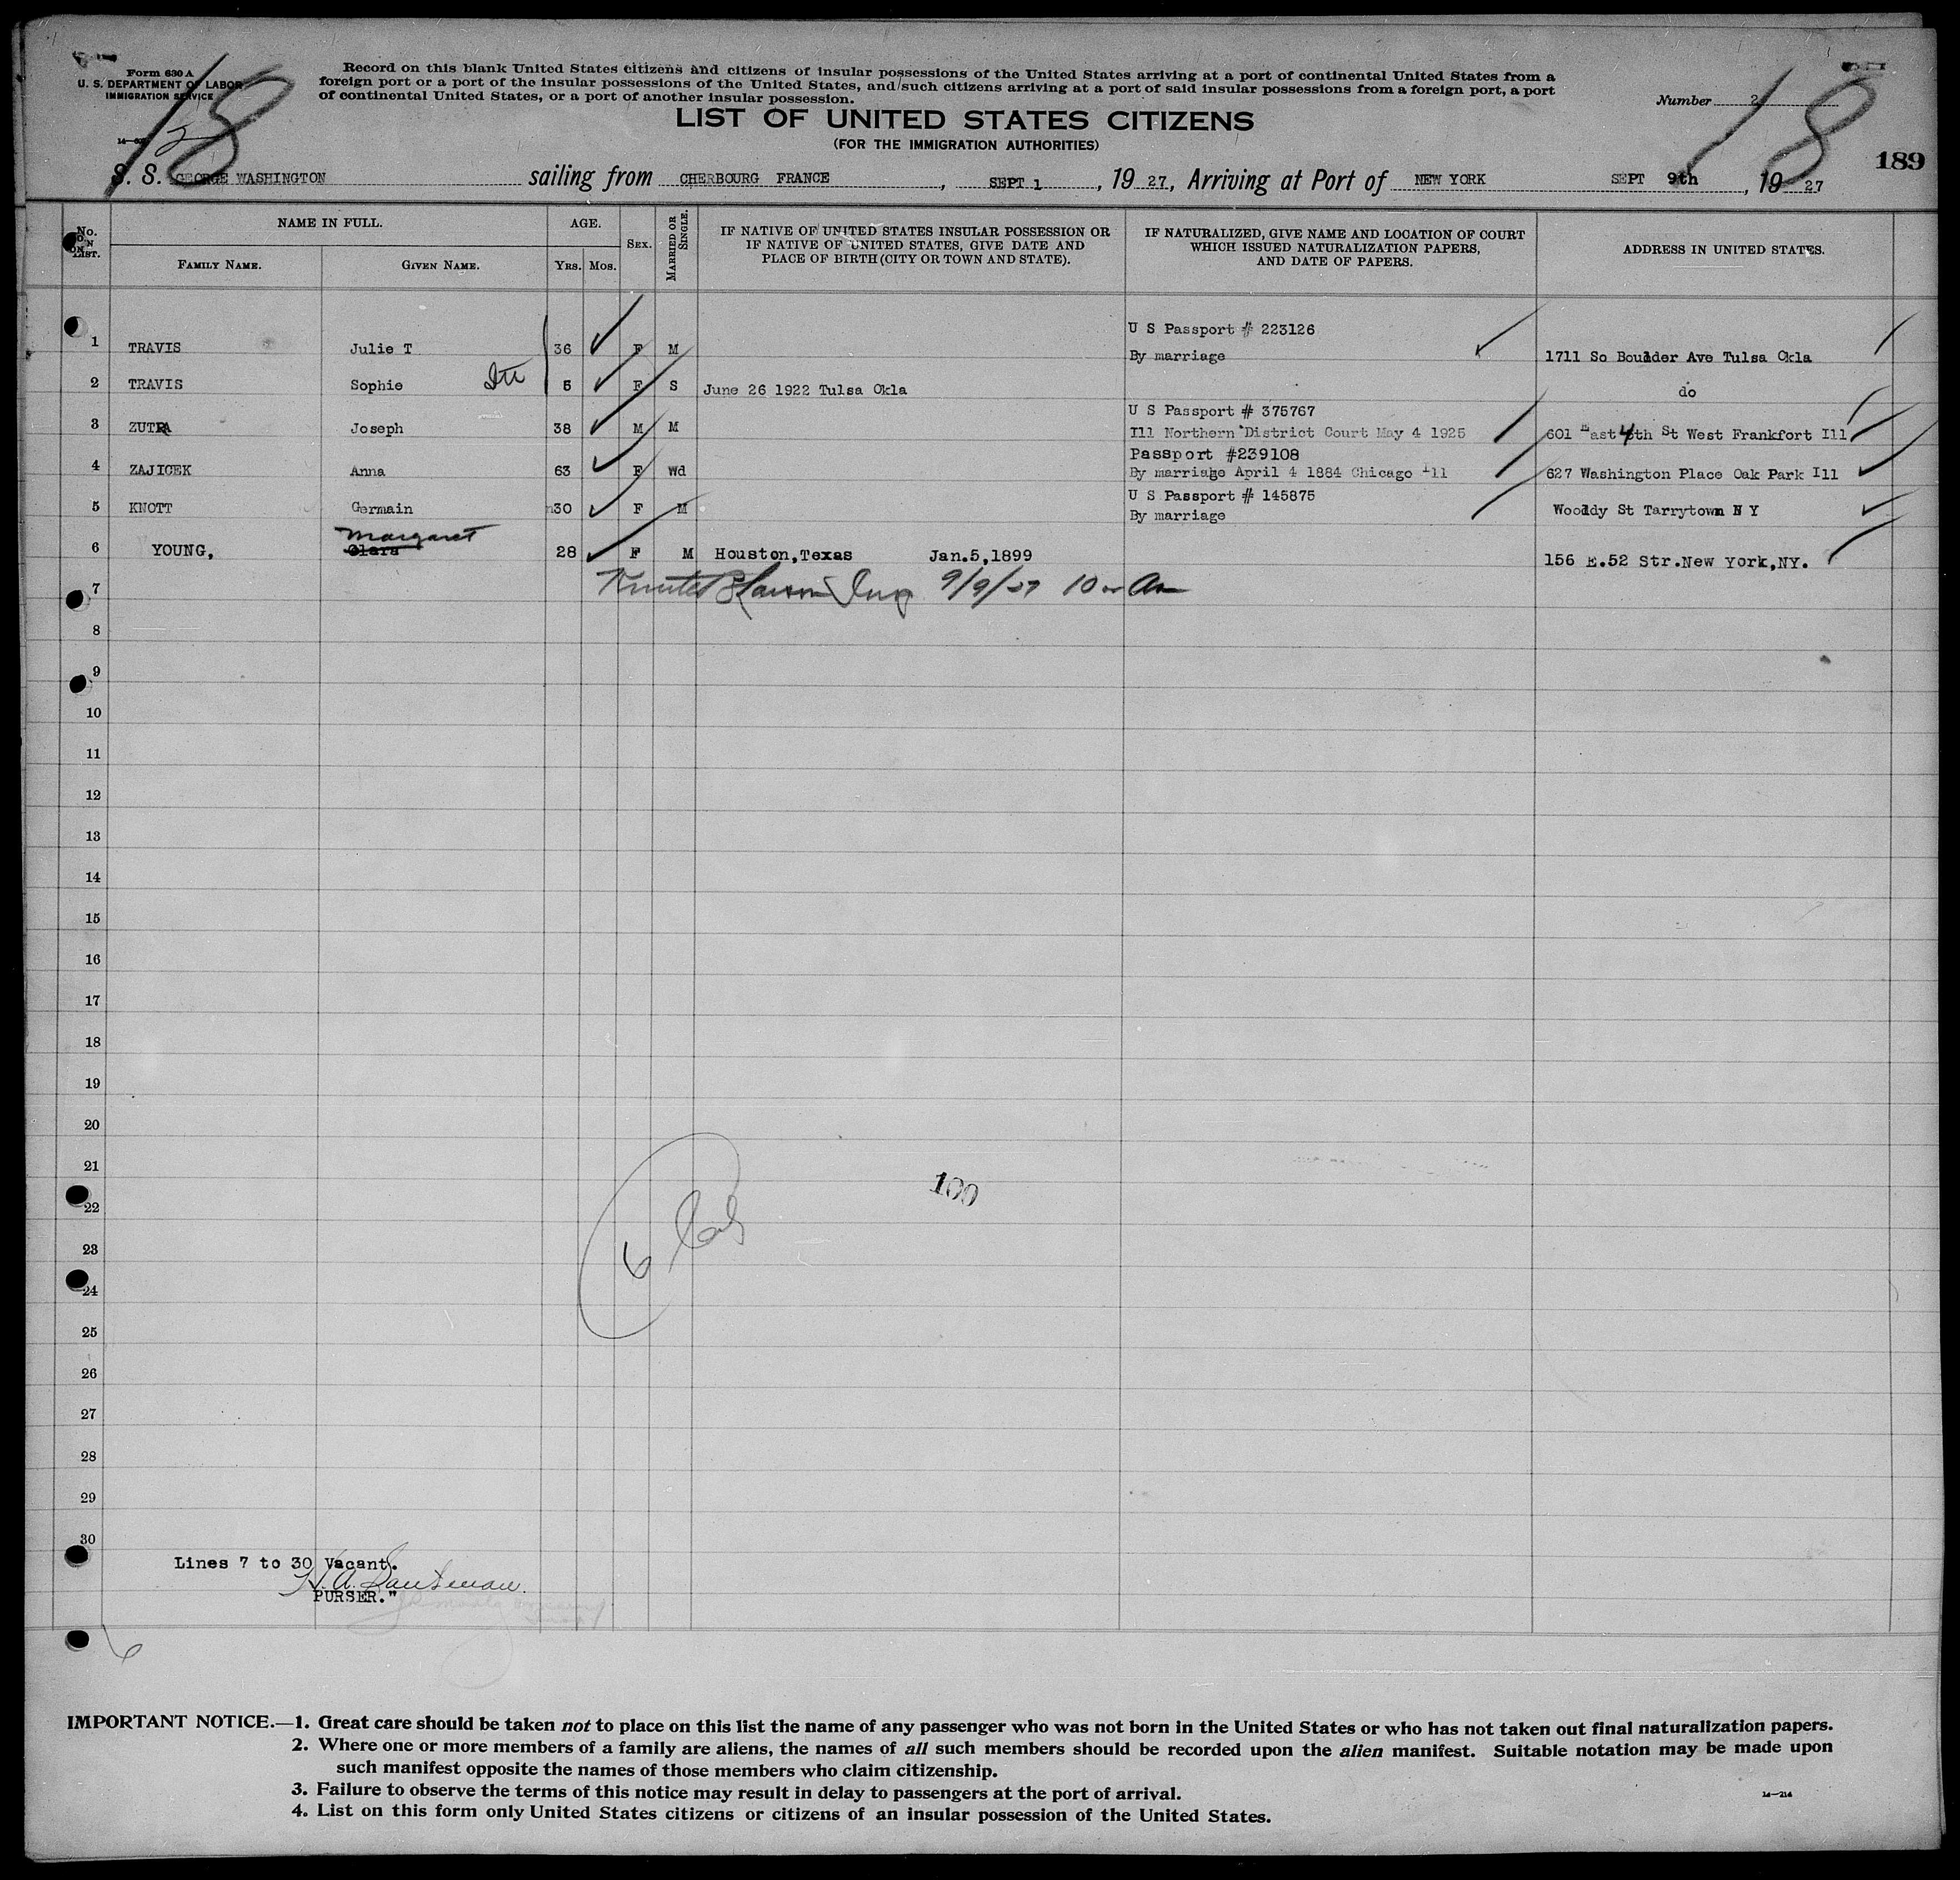 Form 630 A
U. S. DEPARTMENT OF LABOR
IMMIGRATION SERVICE
Record on this blank United States citizens and citizens of insular possessions of the United States arriving at a port of continental United States from a
foreign port or a port of the insular possessions of the United States, and such citizens arriving at a port of said insular possessions from a foreign port, a port
of continental United States, or a port of another insular possession.
18
2
Number 2
18
LIST OF UNITED STATES CITIZENS
(FOR THE IMMIGRATION AUTHORITIES)
189
S. S. GEORGE WASHINGTON sailing from CHERBOURG FRANCE, SEPT 1, 19 27, Arriving at Port of NEW YORK SEPT 9th, 19 27
No. ON LIST. NAME IN FULL. AGE. SEX. MARRIED OR SINGLE. IF NATIVE OF UNITED STATES INSULAR POSSESSION OR IF NATIVE OF UNITED STATES, GIVE DATE AND PLACE OF BIRTH (CITY OR TOWN AND STATE). IF NATURALIZED, GIVE NAME AND LOCATION OF COURT WHICH ISSUED NATURALIZATION PAPERS, AND DATE OF PAPERS. ADDRESS IN UNITED STATES.
FAMILY NAME. GIVEN NAME. YRS. MOS.
U S Passport # 223126
1 TRAVIS Julie T 36 F M By marriage 1711 So Boulder Ave Tulsa Okla
2 TRAVIS Sophie 5 F S June 26 1922 Tulsa Okla do
U S Passport # 375767
3 ZUTRA Joseph 38 M M Ill Northern District Court May 4 1925 601 East 4th St West Frankfort Ill
Passport #239108
4 ZAJICEK Anna 63 F Wd By marriage April 4 1884 Chicago Ill 627 Washington Place Oak Park Ill
U S Passport # 145875
5 KNOTT Germain 30 F M By marriage Wooddy St Tarrytown N Y
Margaret
6 YOUNG, Clara 28 F M Houston, Texas Jan.5,1899 156 E.52 Str.New York,NY.
7 9/9/27 10 Am
8
9
10
11
12
13
14
15
16
17
18
19
20
21
100
22
23
6
24
25
26
27
28
29
30
Lines 7 to 30 Vacant.
PURSER."
6
IMPORTANT NOTICE.—1. Great care should be taken not to place on this list the name of any passenger who was not born in the United States or who has not taken out final naturalization papers.
2. Where one or more members of a family are aliens, the names of all such members should be recorded upon the alien manifest. Suitable notation may be made upon
such manifest opposite the names of those members who claim citizenship.
3. Failure to observe the terms of this notice may result in delay to passengers at the port of arrival.
4. List on this form only United States citizens or citizens of an insular possession of the United States.
14—214